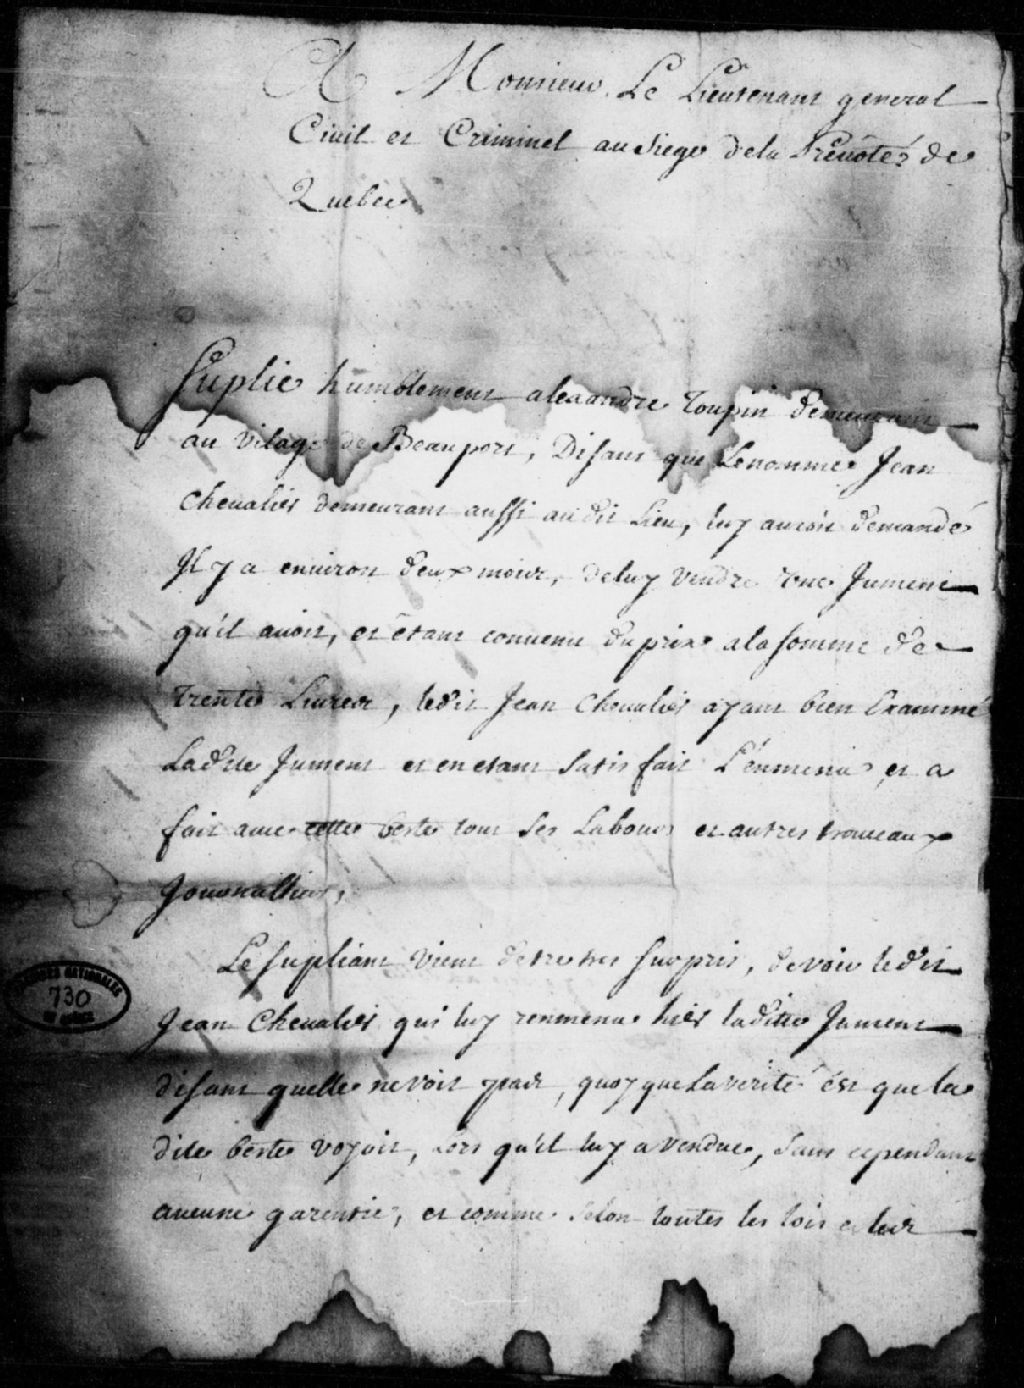 A Monsieur Le Lieutenant general
Civil et Criminel au Siege de la Prévôté de
Quebec
Suplie humblement alexandre Toupin demeurant
au vilage de Beauport, Disant que Lenommé Jean
Chevalier demeurant aussi audit Lieu, luy auroit demandé
Il y a environ deux mois, de luy vendre une Jument
qu'il avoit, et étant convenu du prix a la somme de
trente Livres, ledit Jean Chevalier ayant bien Examiné
Ladite Jument et en etant satisfait L'enmena et a
fait avec cette beste tous ses Labours et autres traveaux
Journalliers,
Le supliant vient detre tres surpris, de voir ledit
Jean Chevalier qui luy renmena hier laditte Jument
disant quelle ne voit pas, quoy que La verité est que la
dite beste voyoit, Lors qu'il luy a vendue, sans cependant
aucune garentie, et comme selon toutes les lois et les
ARCHIVES NATIONALES
730